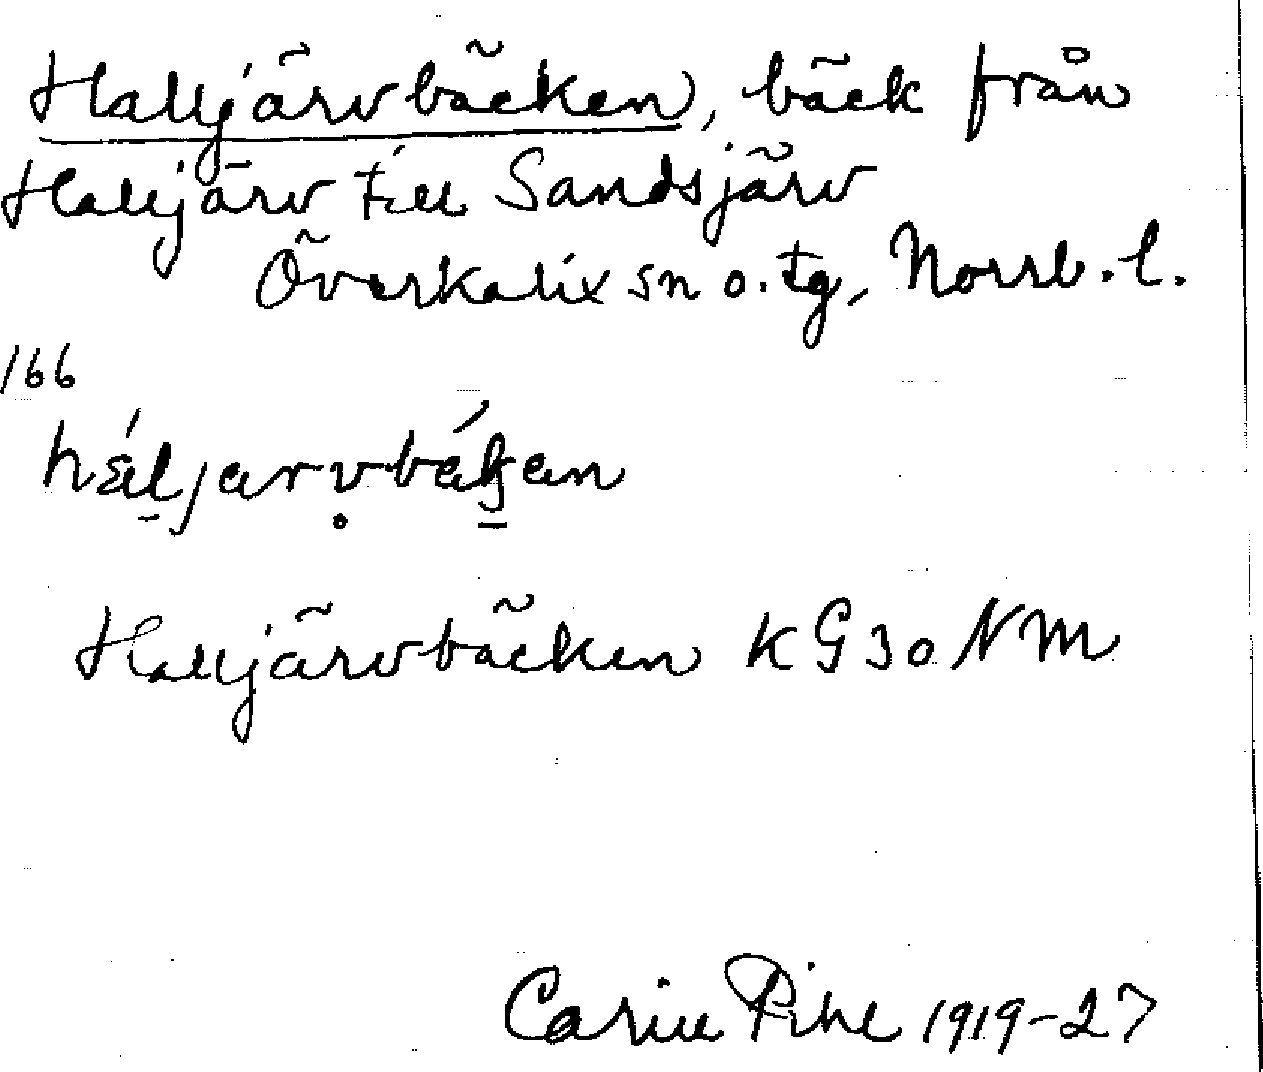 Halljärvbäcken, bäck från
Halljärv till Sandsjärv
Överkalix sn o. tg, Norrb. l.
166
Halljärvbäcken KG30NM
Carin Pihl 1919-27